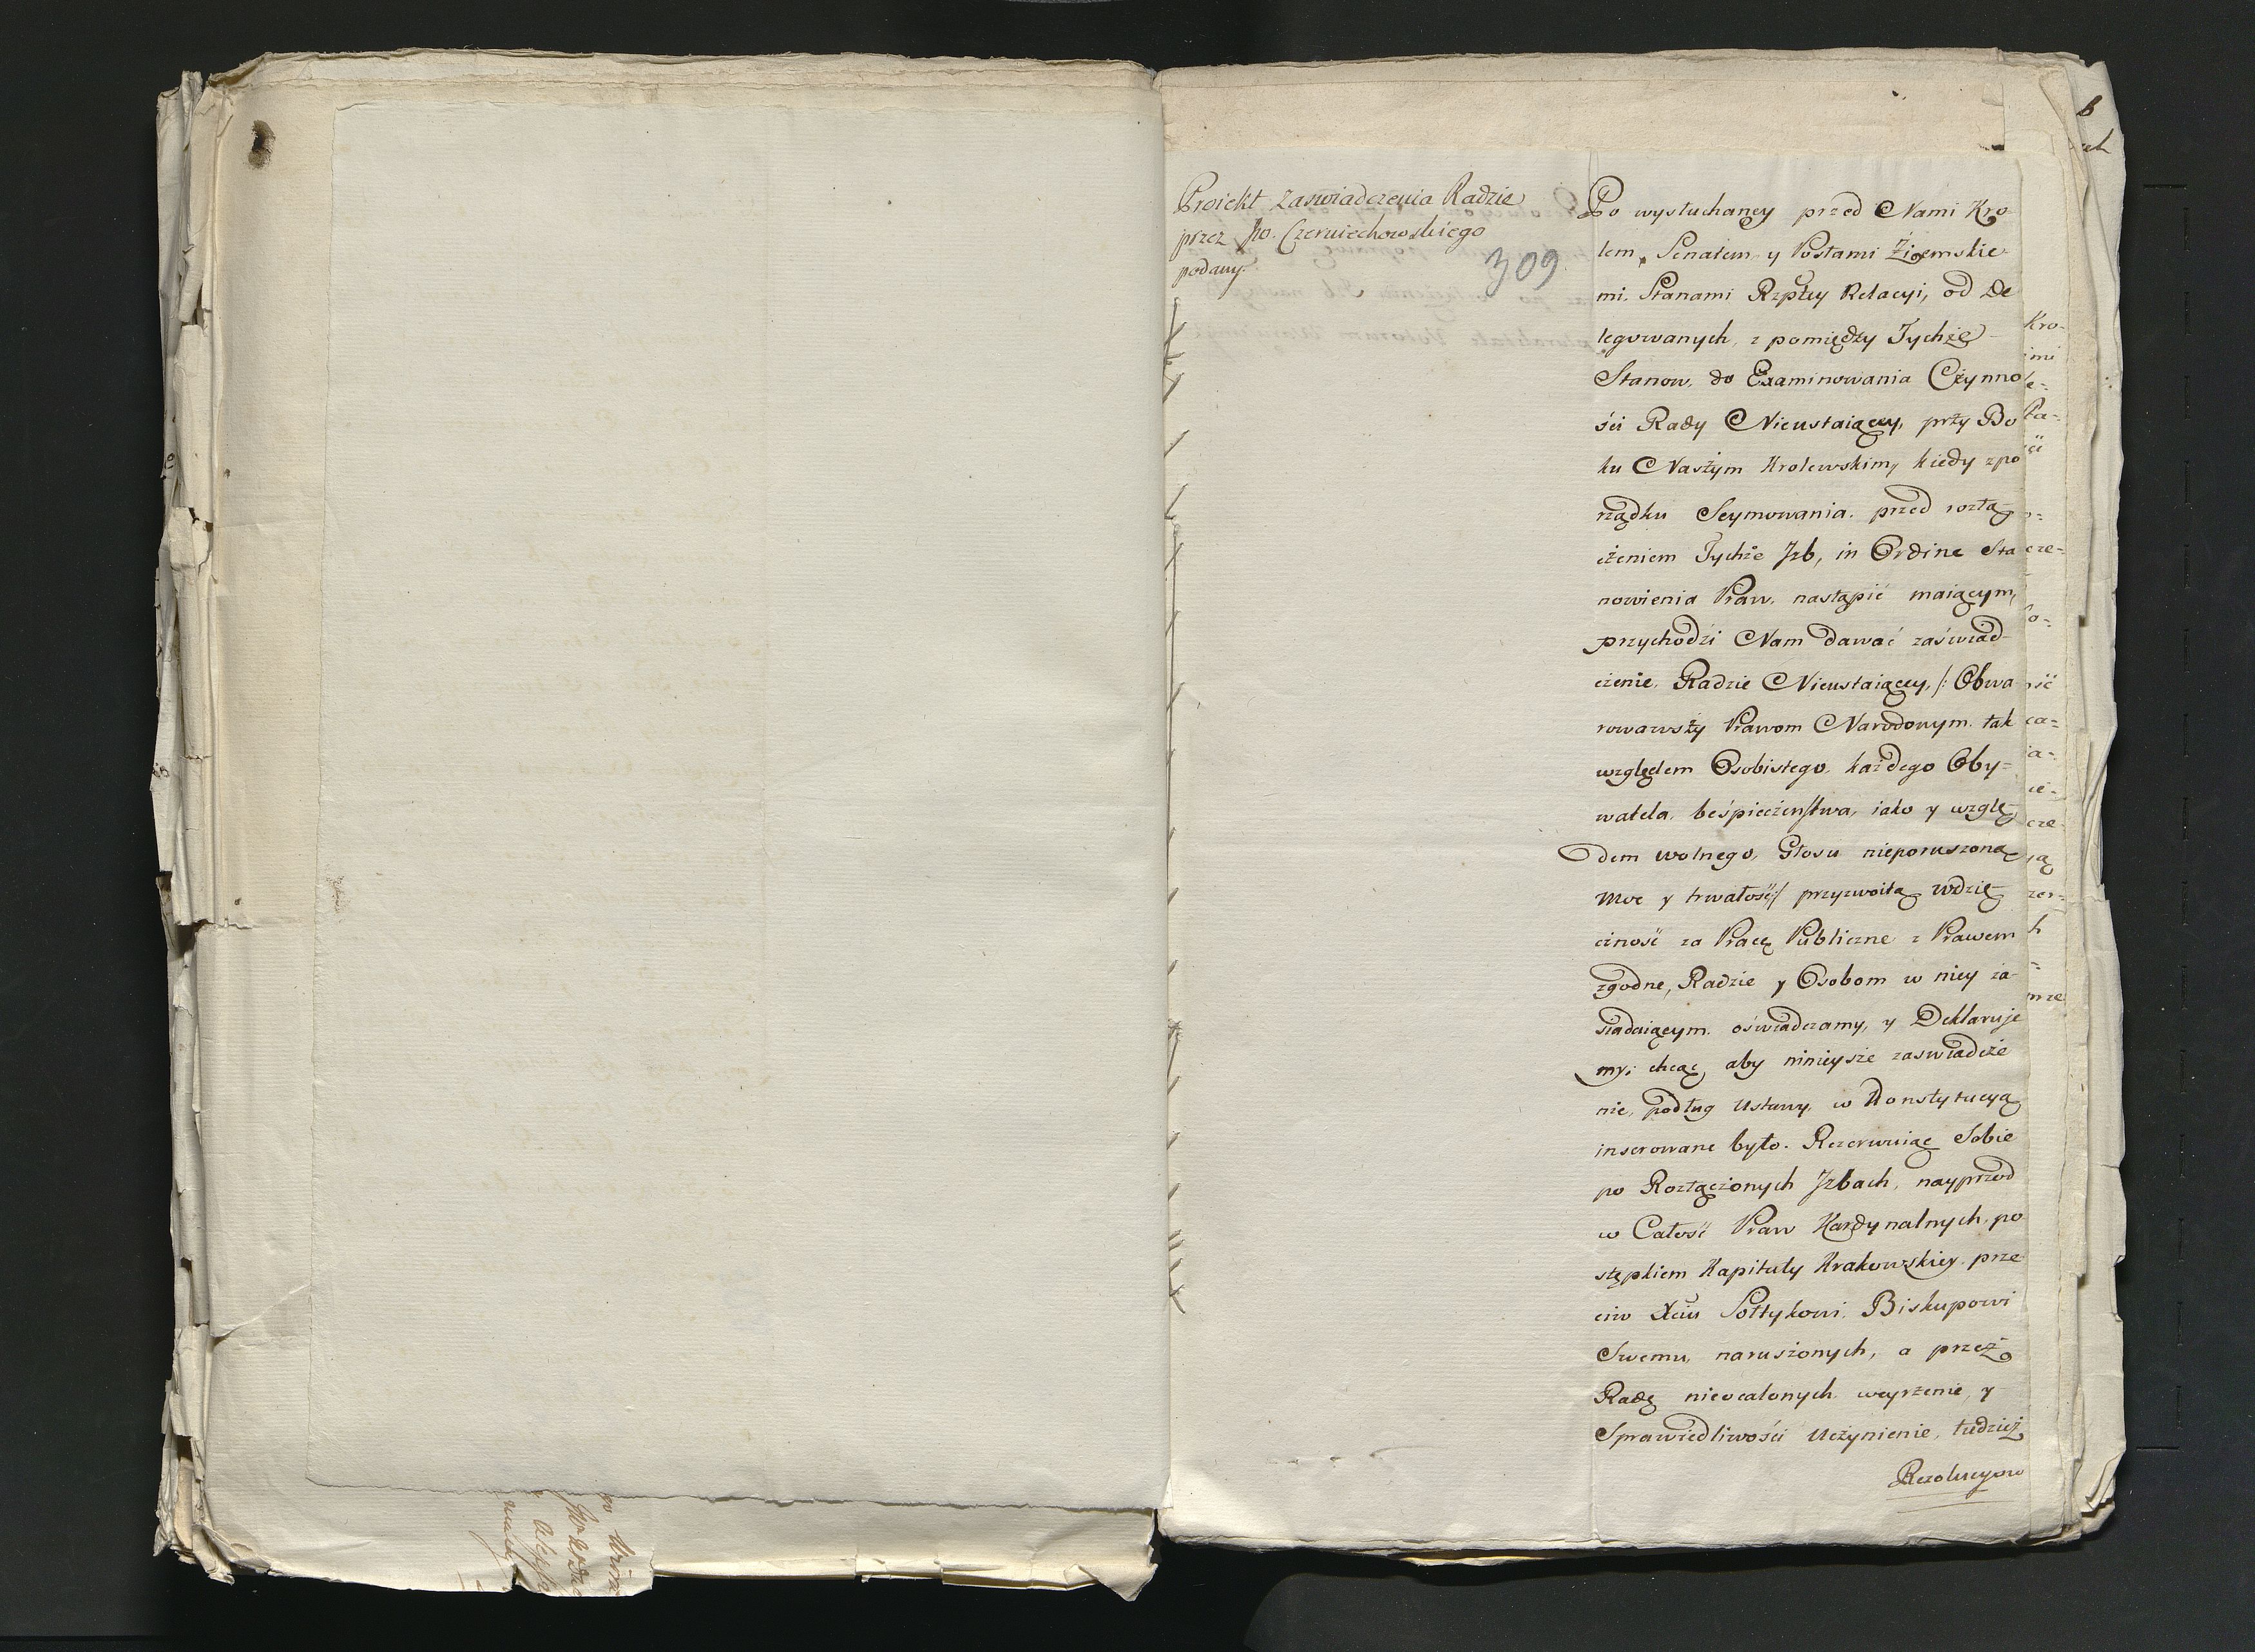 Proiekt zaswiadczenia Radzie
przez po. Czerniechowskiego
podany.
309
Po wysłuchaney przed Nami Kro
lem, Senatem y Posłami Ziemskie
mi, Stanami Rzpltey Relacyi, od De
legowanych, z pomiędzy Tychże
Stanow, do Examinowania Czynno
ści Rady Nieustaiącey, przy Bo
ku Naszym Krolewskim, kiedy z po
rządku Seymowania przed rozłą
czeniem Tychże Izb, in Ordine Sta
nowienia Praw, nastąpić maiącym,
przychodzi Nam dawać zaświad
czenie, Radzie Nieustaiącey, /: Obwa
rowawszy Prawom Narodowym tak
względem Osobistego, każdego Oby=
watela, beśpieczenstwa, iako y wzglę
dem wolnego, Głosu nieporuszoną
moc y trwałość :/ przyzwoitą wdzię
czność za Pracę Publiczne z Prawem
zgodne, Radzie y Osobom w niey za
siadaiącym oświadczamy, y Deklaruje
my; chcąc, aby ninieysze zaswiadcze
nie, podług Ustawy, w Konstytucyą
inserowane było. Rezerwuiąc Sobie
po Rozłączonych Izbach, nayprzod
w Całość Praw Kardynalnych, po
stępkiem Kapituły Krakowskiey prze
ciw Xciu Sołtykowi, Biskupowi
Swemu, naruszonych, a przez
Radę nieocalonych weyrzenie, y
Sprawiedliwości Uczynienie, tudziesz
Rezolucyow